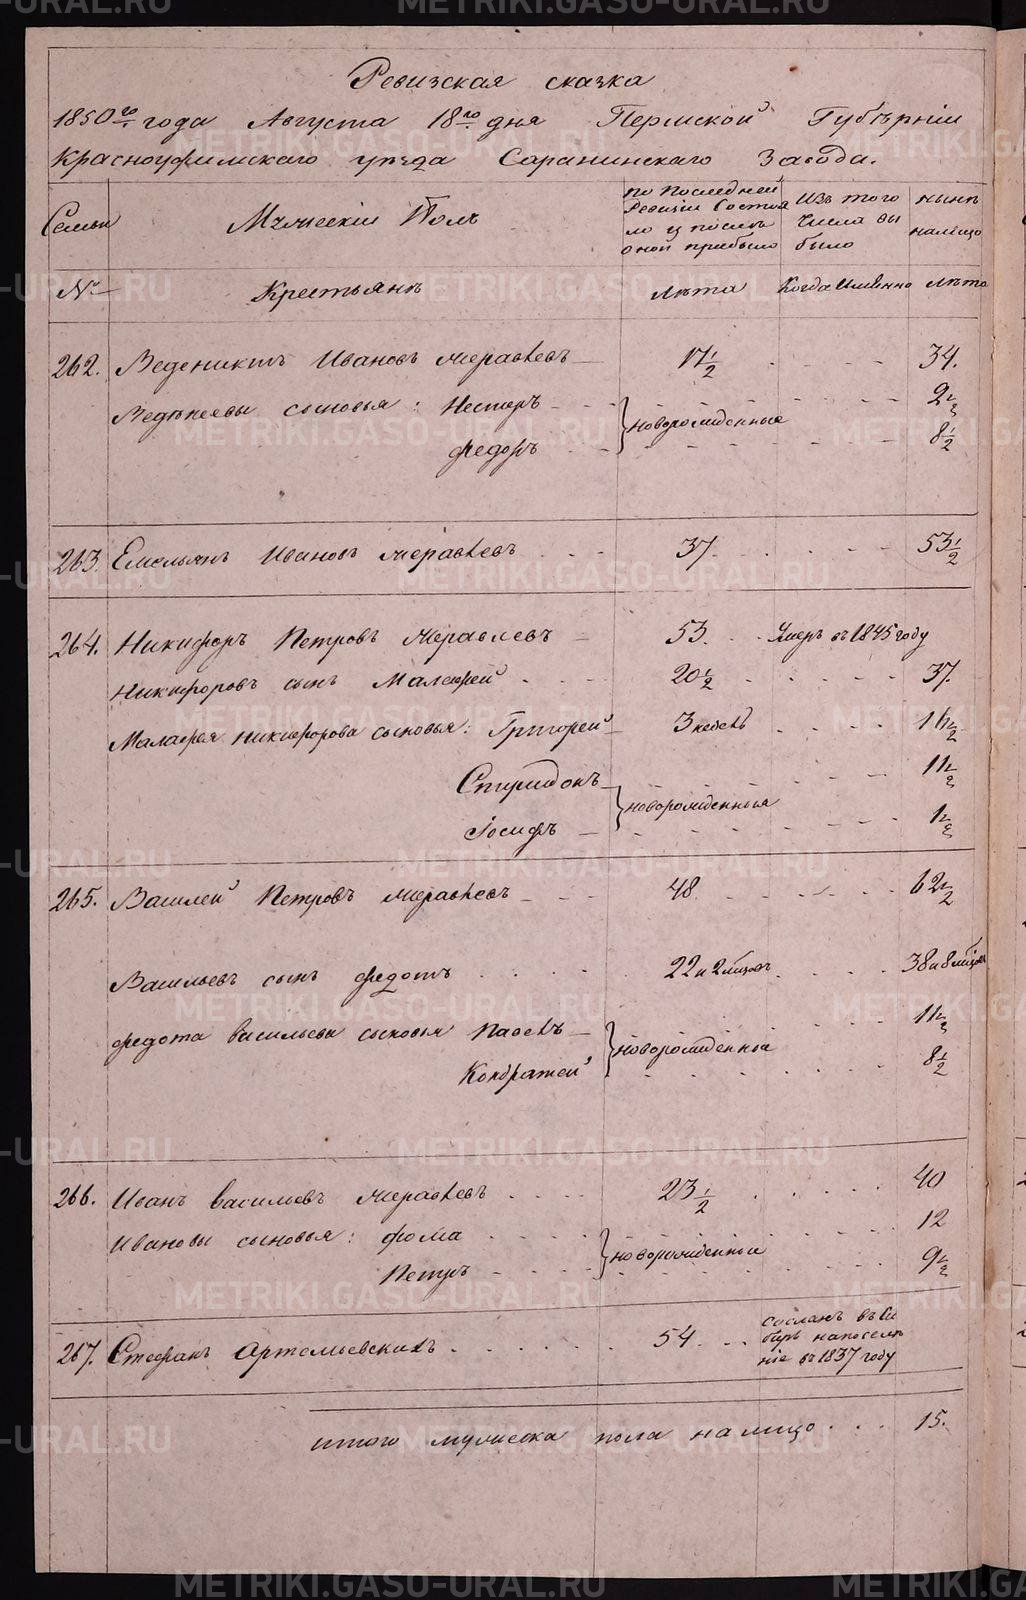 Ревизская сказка
1850го года Августа 18го дня Пермской Губернiи
Красноуфимскаго уезда Саранинскаго Завода.
Семьи
Мужескiй Полъ
по последней
Ревизiи состоя
ло и после
оной прибыло
Изъ того
числа вы
было
ныне
налицо
№
Крестьяне
лета
Когда Именно
лета
262. Веденихтъ Ивановъ Журавлевъ 17 1/2 34.
сыновья: Нестеръ 2 1/2
новорожденные
Федоръ 8 1/2
263. Емельянъ Ивановъ Журавлевъ 37 53 1/2
264. Никифоръ Петровъ Журавлевъ 53 Умеръ въ 1845 году
Никифоровъ сынъ Малафей 20 1/2 37.
Малафея Никифорова сыновья: Григорей 3 недель 16 1/2
Спиридонъ 11 1/2
новорожденныя
Iосифъ 1 1/2
265. Василей Петровъ Журавлевъ 48 62 1/2
Васильевъ сынъ Федотъ 22 и 2 месяцовъ 38 и 8 месяцов
Федота Васильева сыновья Павелъ 11 1/2
новорожденные
Кондратей 8 1/2
266. Иванъ Васильевъ Журавлевъ 23 1/2 40
Ивановы сыновья: Фома 12
новорожденные
Петръ 9 1/2
267. Стефанъ Артемьевскихъ 54
сосланъ въ Си
бирь на поселе
нiе въ 1837 году
итого мужеска пола на лицо 15.
METRIKI.GASO-URAL.RU